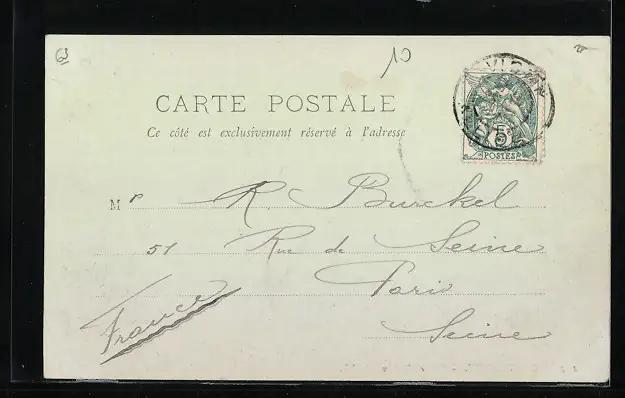 63
10
CARTE POSTALE
Ce côté est exclusivement réservé à l'adresse
5
POSTES
Mr R. Burckel
51 Rue de Seine
Paris
France
Seine